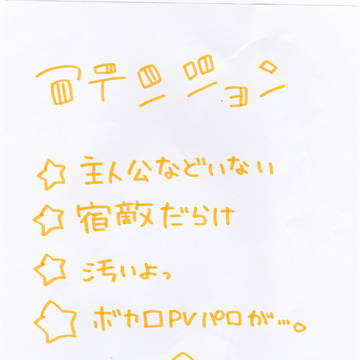 アテンション
☆主人公などいない
☆宿敵だらけ
☆汚いよっ
☆ボカロPVパロが…。